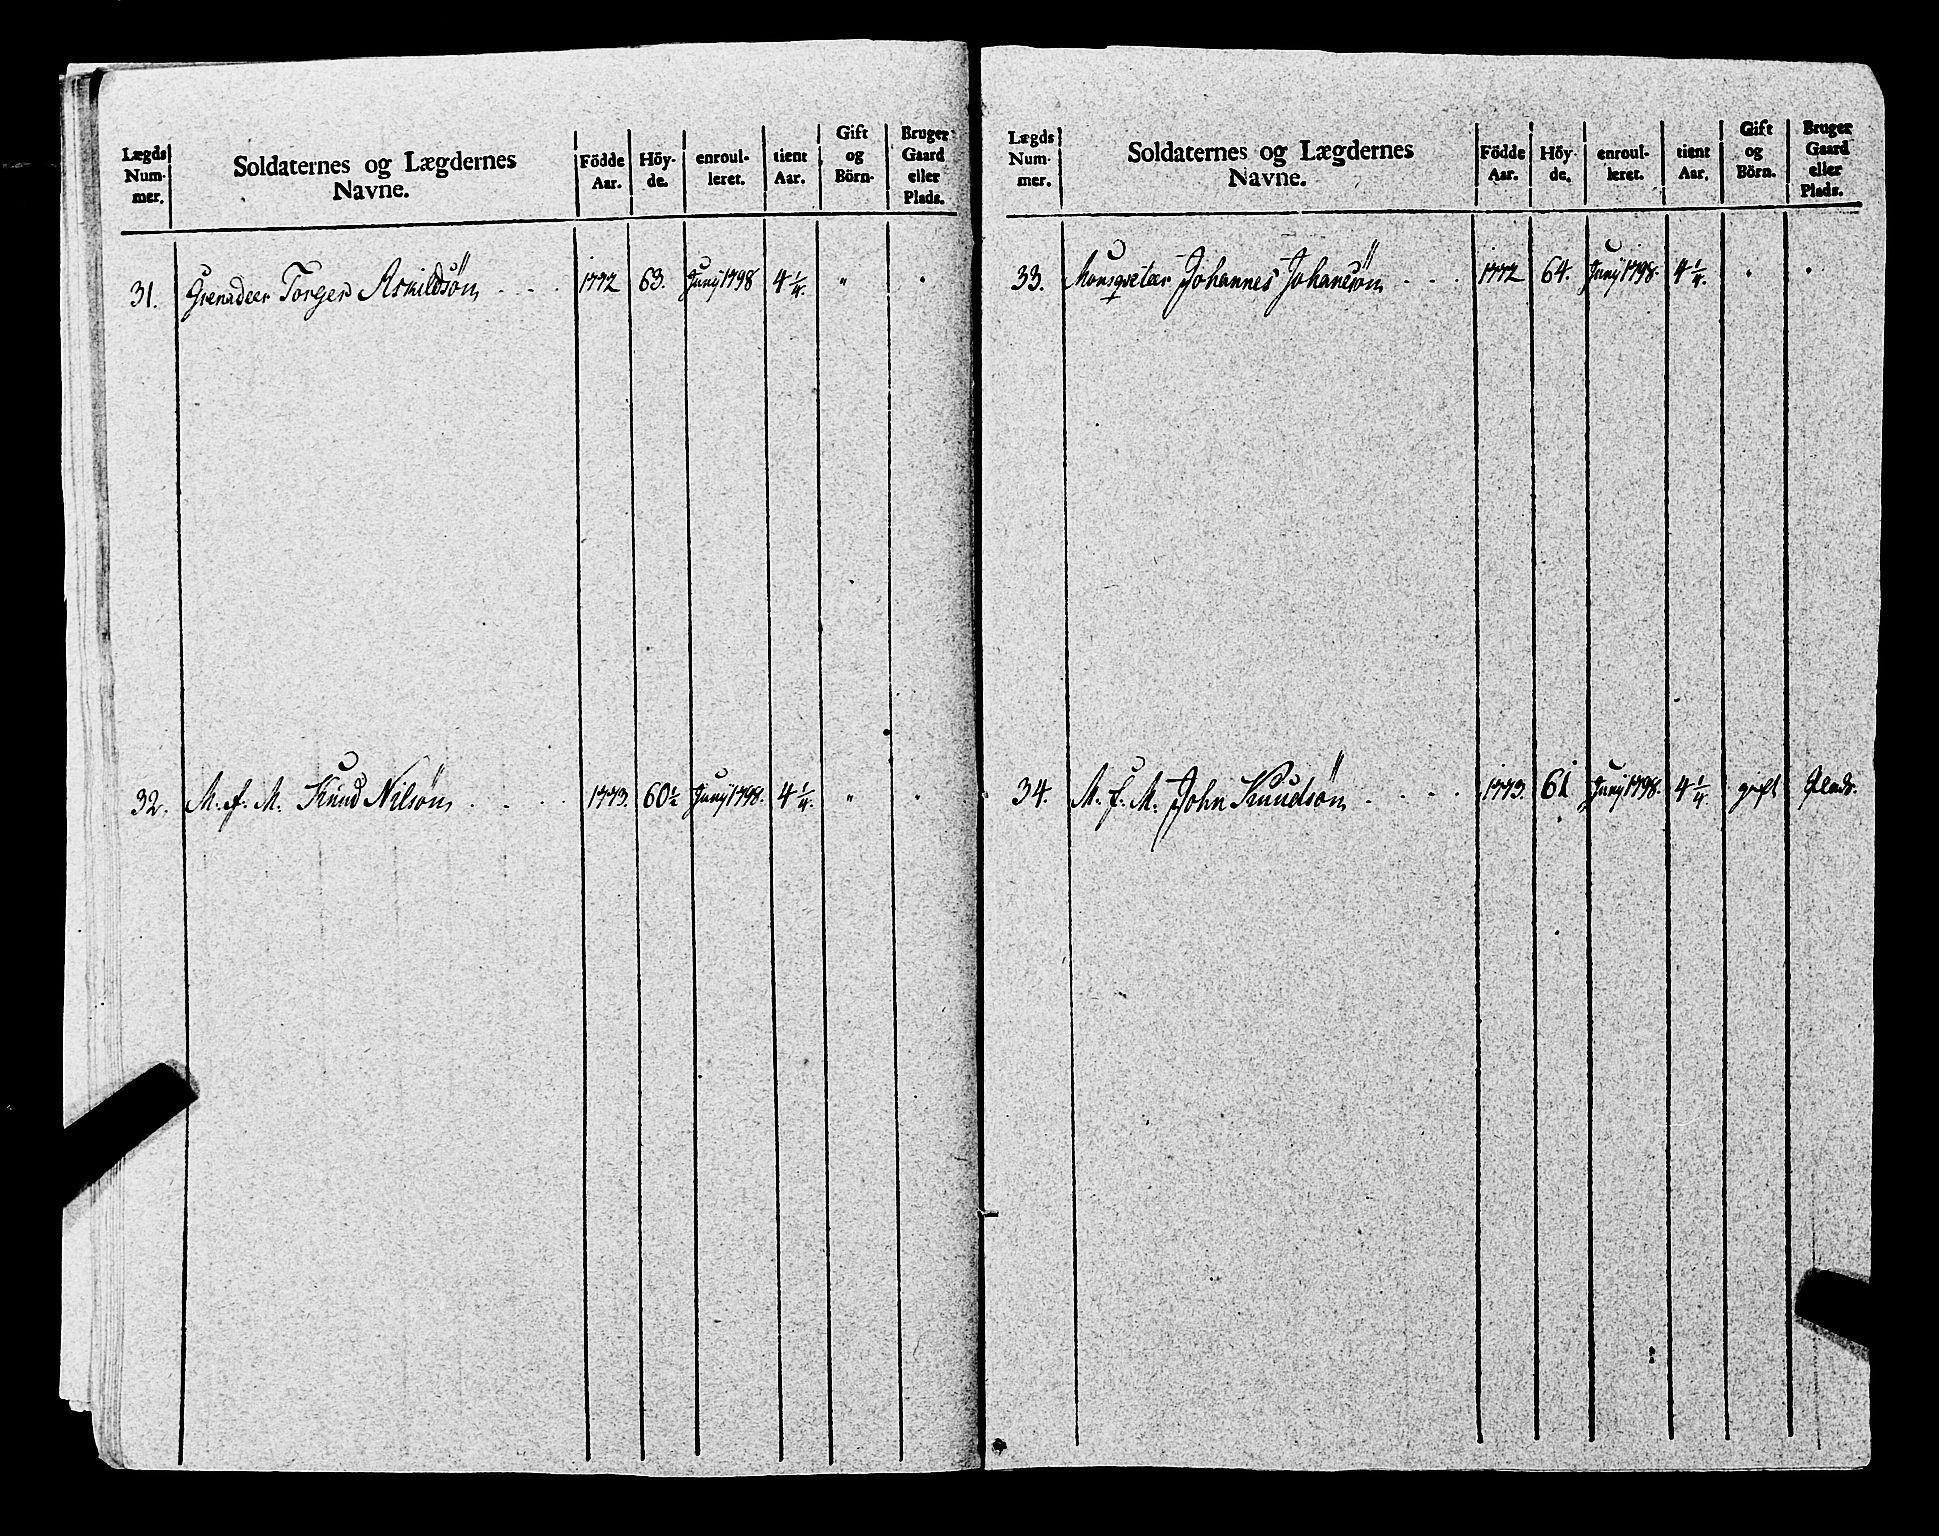 Lægds Num- mer. Soldaternes og Lægdernes Navne. Födde Aar. Höy- de. enroul- leret. tient Aar. Gift og Börn. Bruger Gaard eller Plads.
31. Grenadeer Torger Askildsøn .... 1772 63. Junÿ 1798 4 1/4. " "
32. M. f. M. Knud Nilsøn .... 1773. 60 1/2 Junÿ 1798. 4 1/4. " "
Lægds Num- mer. Soldaternes og Lægdernes Navne. Födde Aar. Höy- de. enroul- leret. tient Aar. Gift og Börn. Bruger Gaard eller Plads.
33. Mousqvetær Johannes Johanesøn ... 1772 64. Junÿ 1798. 4 1/4. " "
34. M. f. M. John Knudsøn .... 1773. 61 Junÿ 1798. 4 1/4. gift Plads.